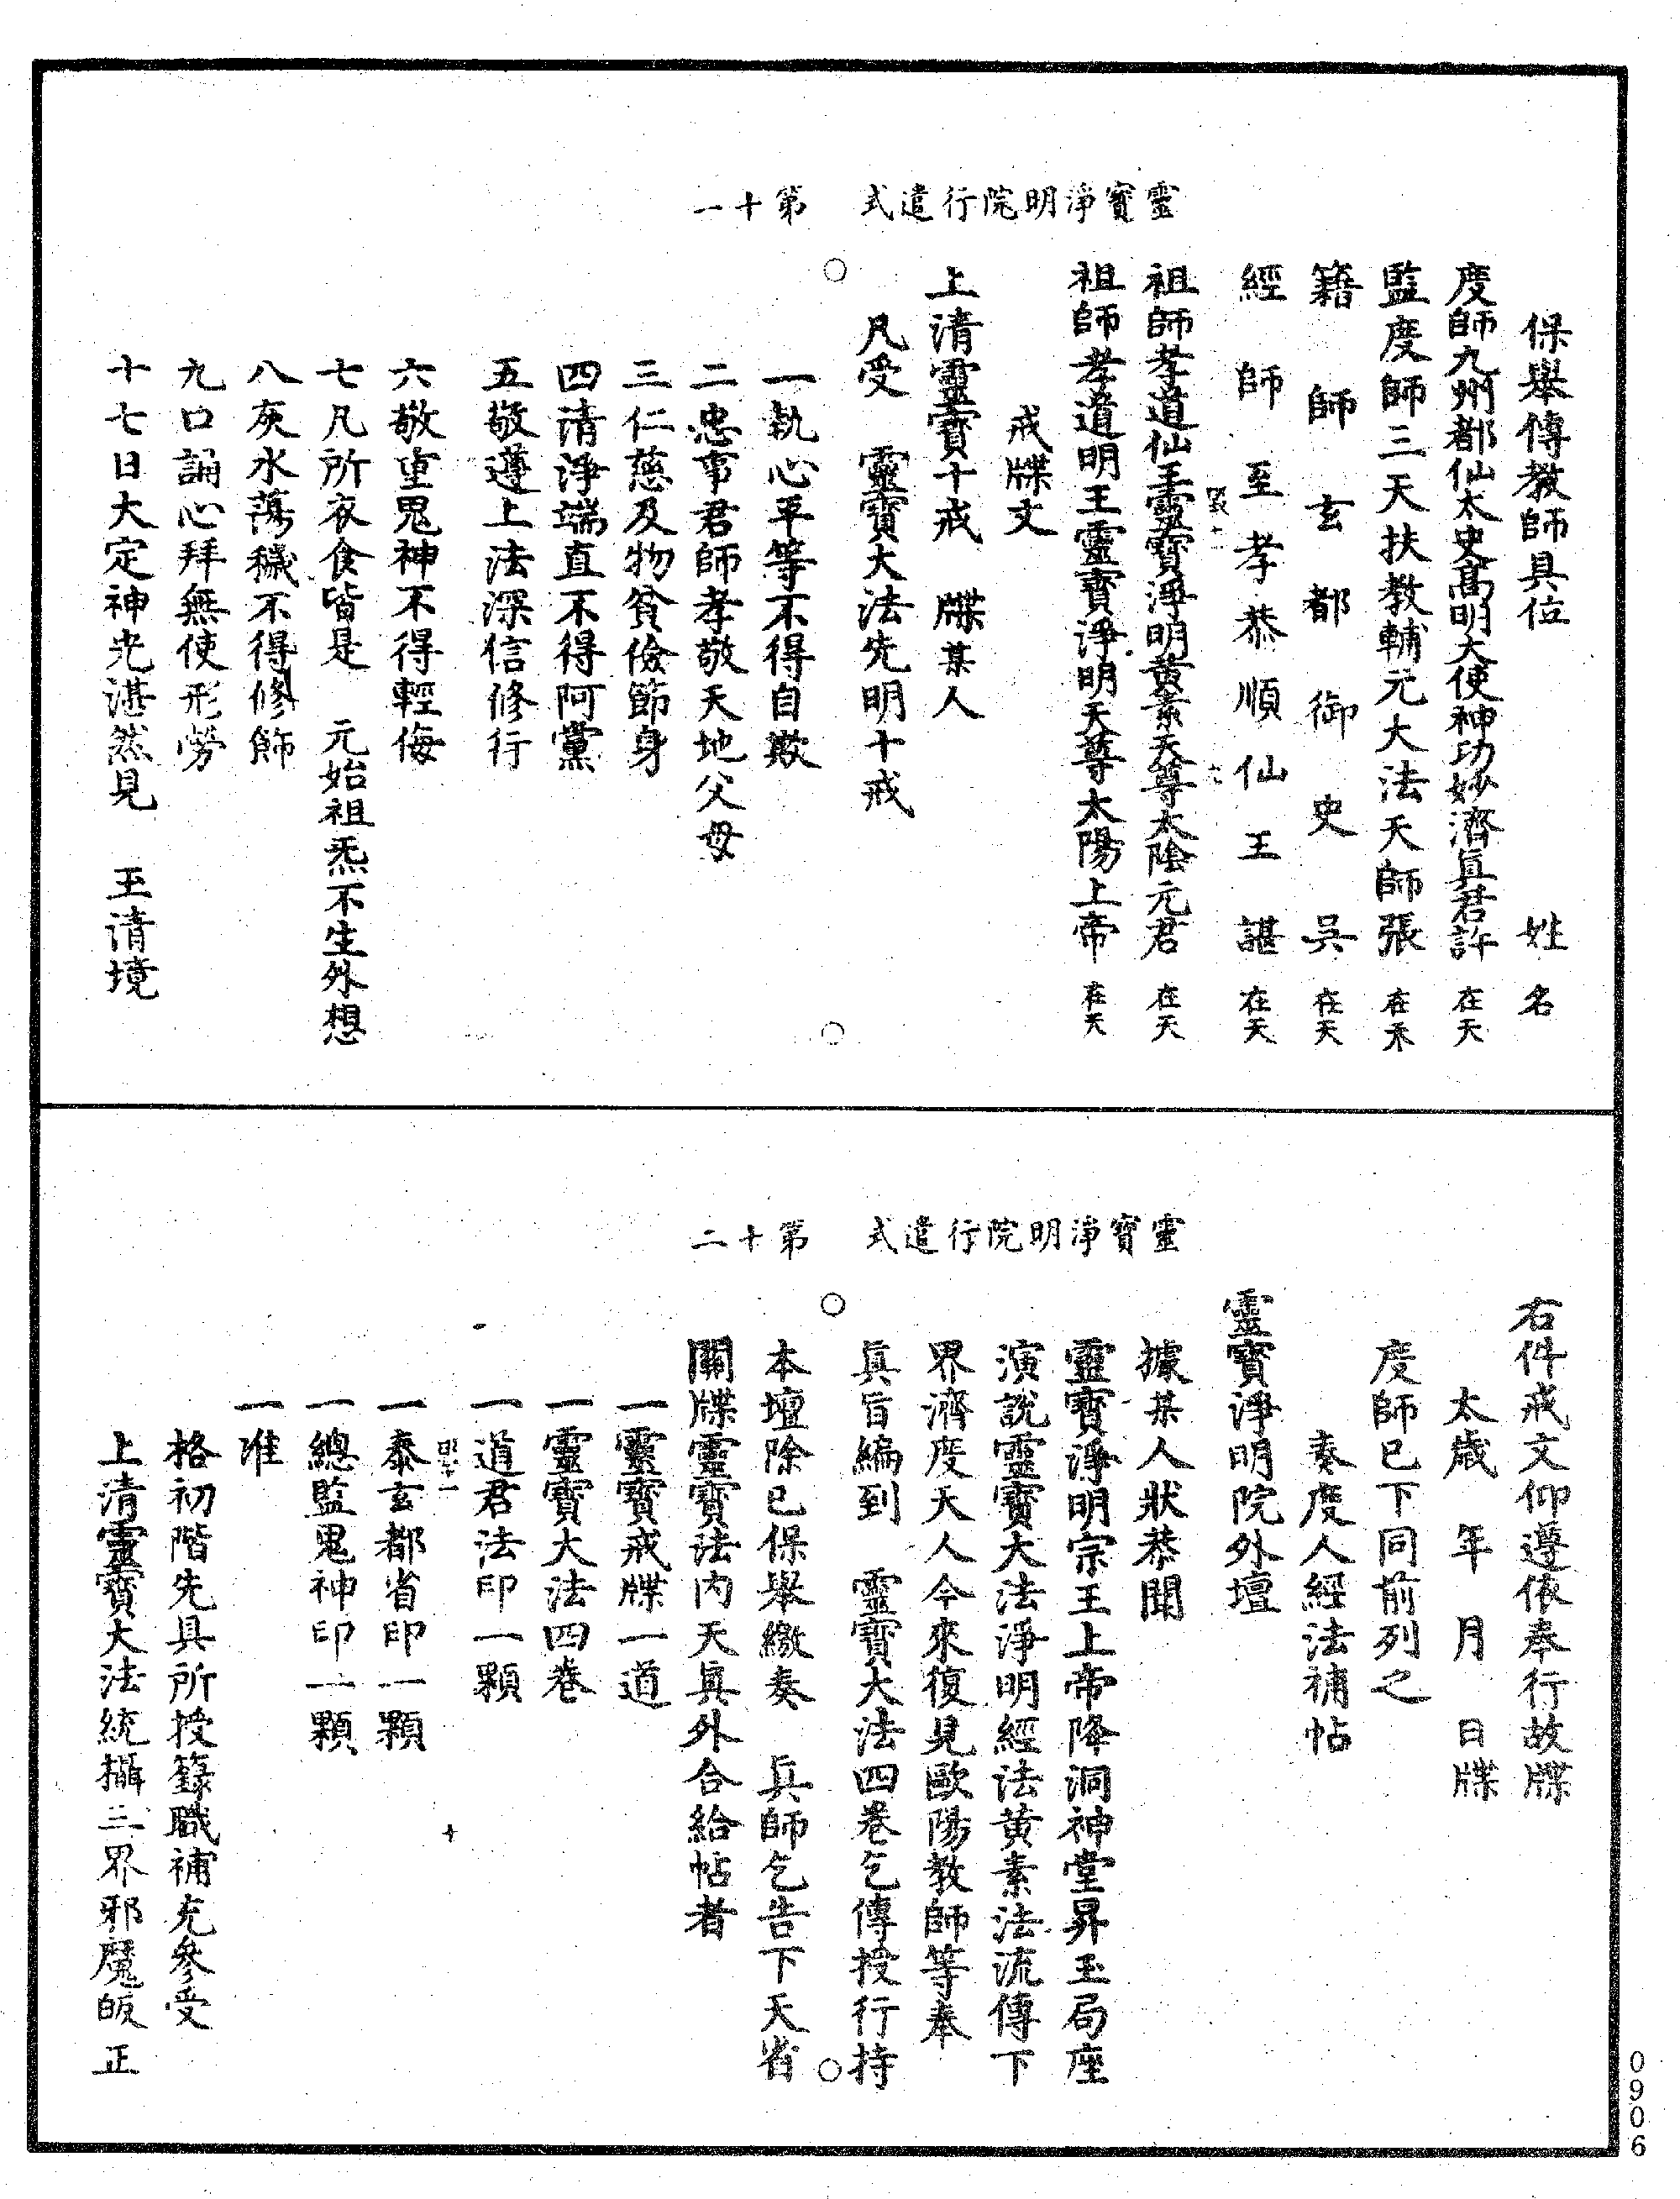 靈寶淨明院行遣式　第十一
保舉傳教師具位　姓名
度師九州都仙太史高明大使神功妙濟真君許在天
監度師三天扶教輔元大法天師張在天
籍師玄都御史吳在天
經師至孝恭順仙王諶在天
祖師孝道仙王靈寶淨明黃素天尊太陰元君在天
祖師孝道明王靈寶淨明天尊太陽上帝在天
戒牒文
上清靈寶十戒　牒某人
凡受　靈寶大法先明十戒
一執心平等不得自欺
二忠事君師孝敬天地父母
三仁慈及物貧儉節身
四清淨端直不得阿黨
五敬遵上法深信修行
六敬重鬼神不得輕侮
七凡所衣食皆是　元始祖炁不生外想
八灰水蕩穢不得修飾
九口誦心拜無使形勞
十七日大定神光湛然見　玉清境
靈寶淨明院行遣式　第十二
右件戒文仰遵依奉行故牒
太歲　年　月　日牒
度師已下同前列之
奏度人經法補帖
靈寶淨明院外壇
據某人狀恭聞
靈寶淨明宗王上帝降洞神堂昇玉局座
演說靈寶大法淨明經法黃素法流傳下
界濟度天人今來復見歐陽教師等奉
真旨編到　靈寶大法四卷乞傳授行持
本壇除已保舉繳奏　真師乞告下天省
關牒靈寶法內天真外合給帖者
一靈寶戒牒一道
一靈寶大法四卷
一道君法印一顆
一泰玄都省印一顆
一總監鬼神印一顆
一准
格初階先具所授籙職補充參受
上清靈寶大法統攝三界邪魔皈正
0906